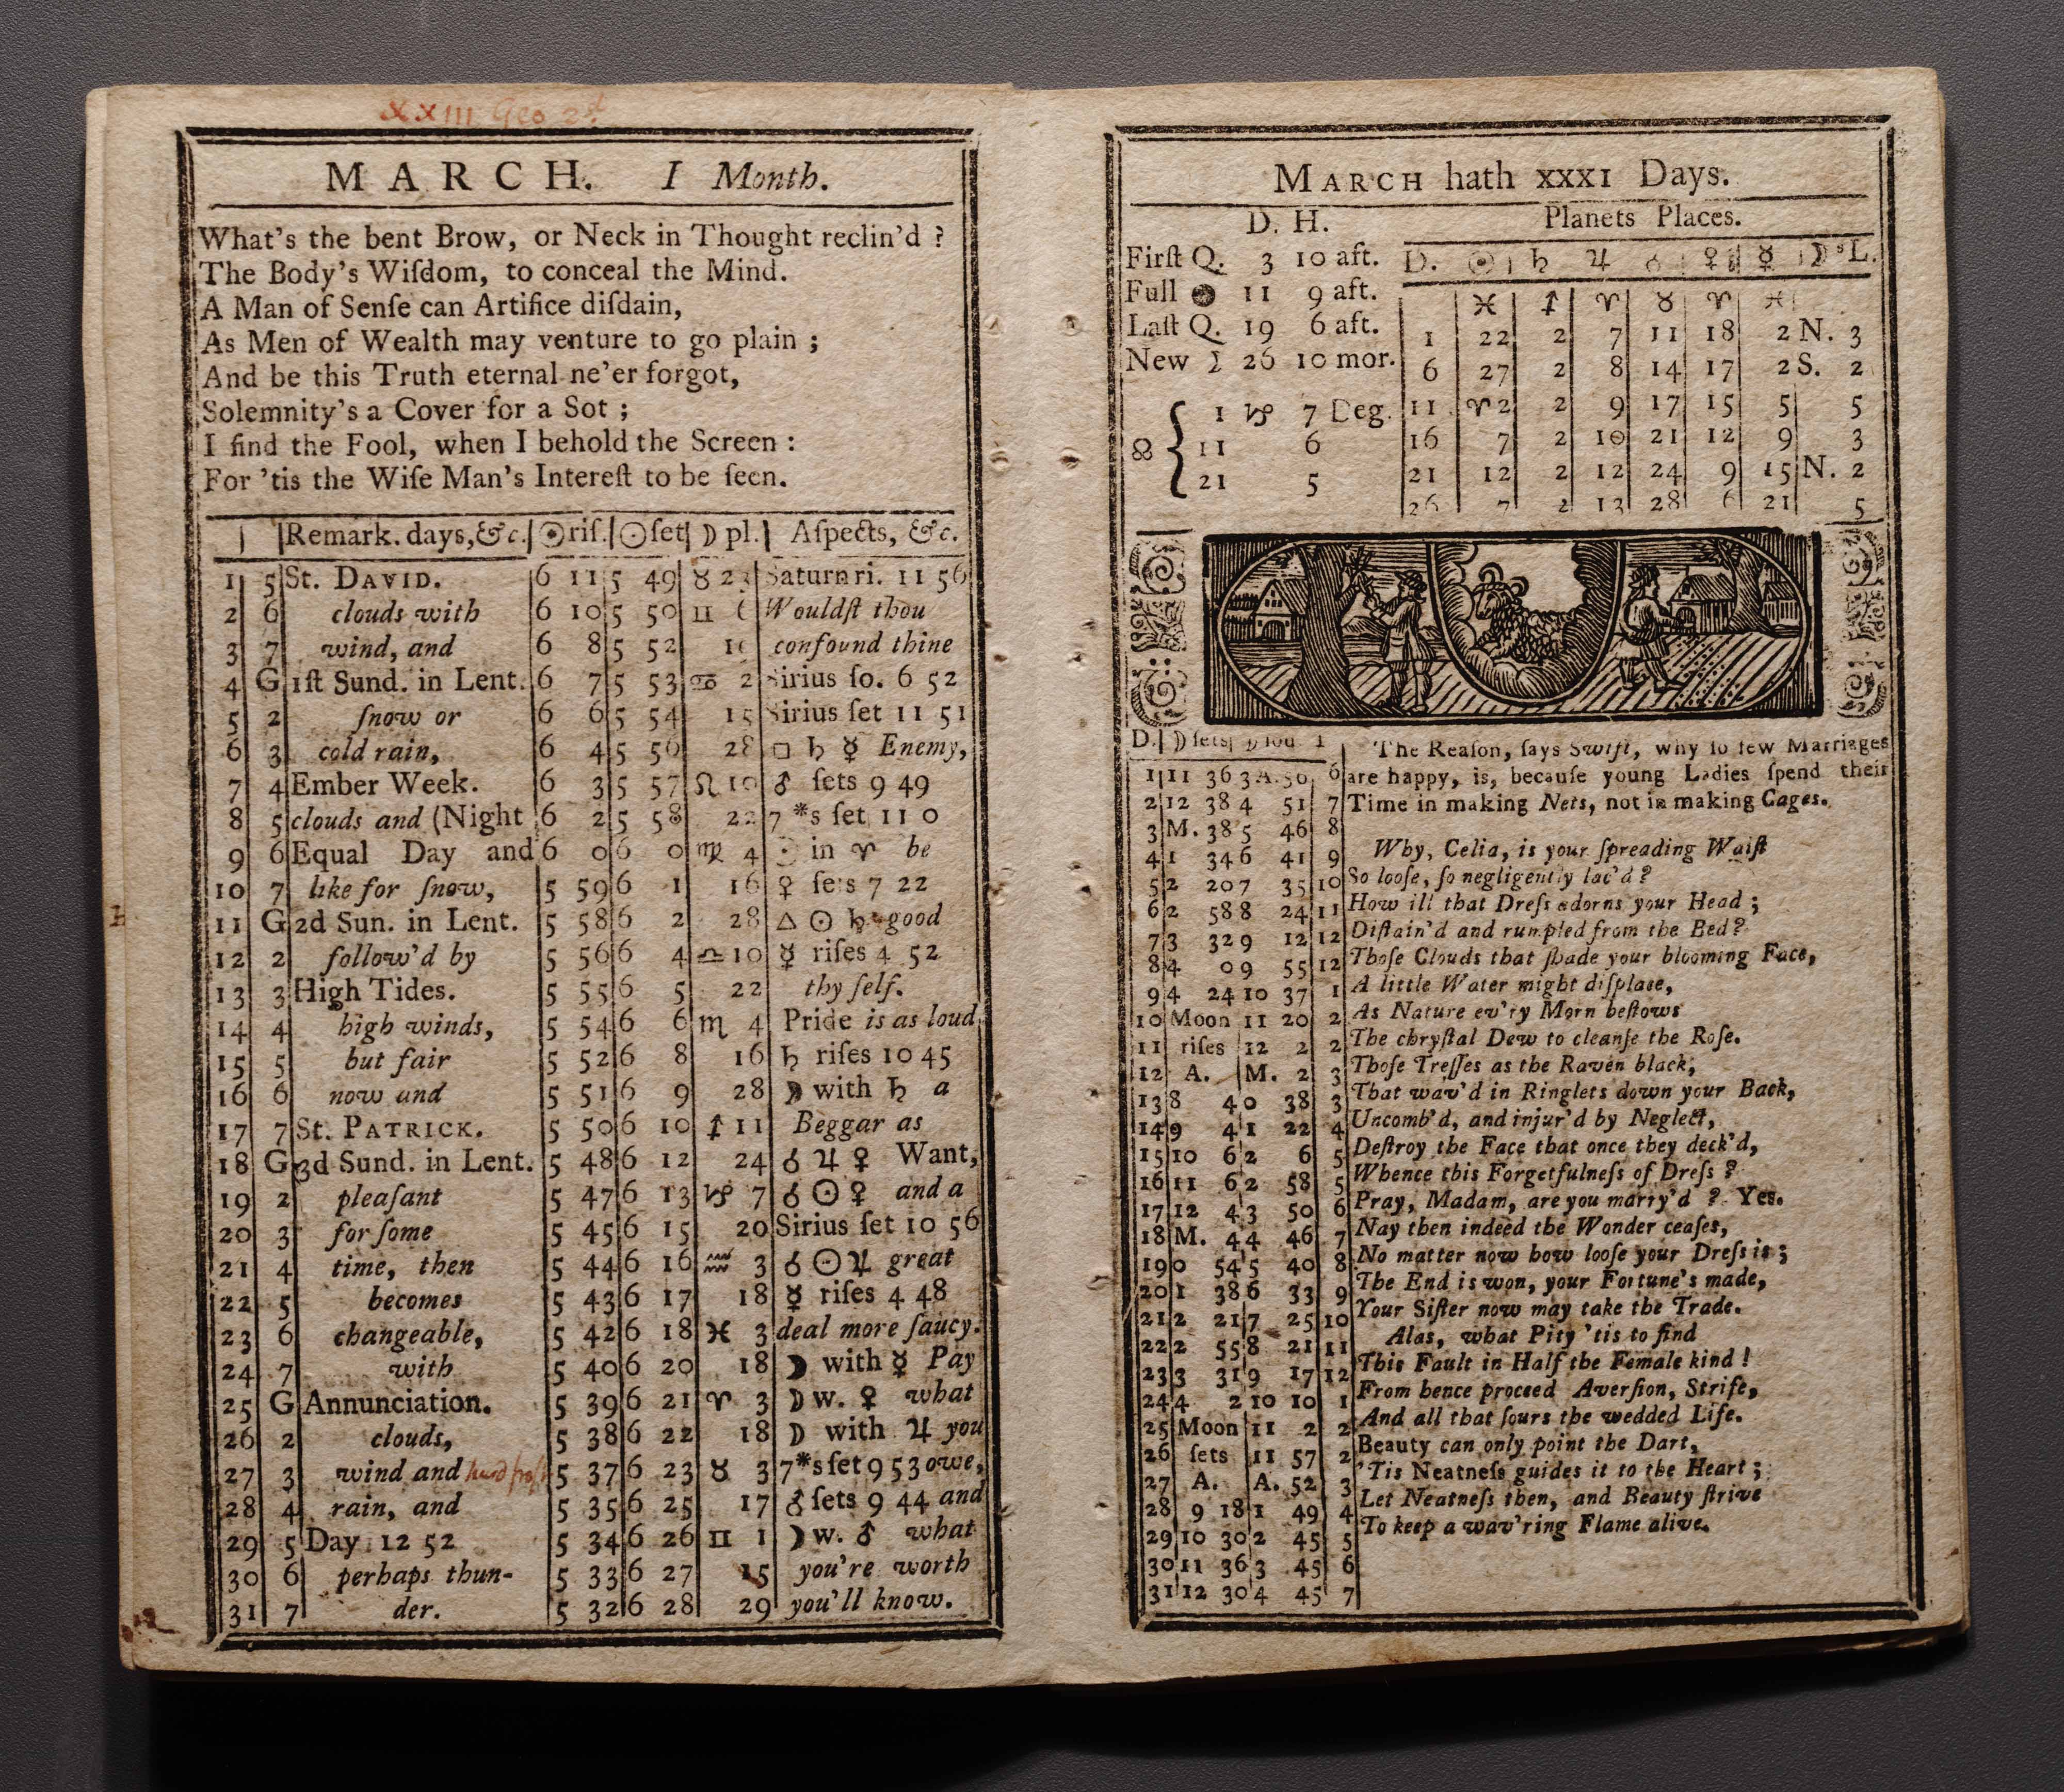 XXIII Geo 2d
MARCH. I Month.
What's the bent Brow, or Neck in Thought reclin'd ?
The Body's Wiſdom, to conceal the Mind.
A Man of Senſe can Artifice diſdain,
As Men of Wealth may venture to go plain ;
And be this Truth eternal ne'er forgot,
Solemnity's a Cover for a Sot ;
I find the Fool, when I behold the Screen :
For 'tis the Wiſe Man's Intereſt to be ſeen.
Remark. days, &c. ☉riſ. ☉ſet ☽ pl. Aſpects, &c.
1 5 St. DAVID. 6 11 5 49 ♉ Saturn ri. 11 56
2 6 clouds with 6 10 5 50 ♊ Wouldſt thou
3 7 wind, and 6 8 5 52 confound thine
4 G 1ſt Sund. in Lent. 6 7 5 53 ♋ 2 Sirius ſo. 6 52
5 2 ſnow or 6 6 5 54 15 Sirius ſet 11 51
6 3 cold rain, 6 4 5 56 28 □ ♄ ☿ Enemy,
7 4 Ember Week. 6 3 5 57 ♌ 10 ♂ ſets 9 49
8 5 clouds and (Night 6 2 5 58 22 7 *s ſet 11 0
9 6 Equal Day and 6 0 6 0 ♍ 4 ☉ in ♈ be
10 7 like for ſnow, 5 59 6 1 16 ♀ ſets 7 22
11 G 2d Sun. in Lent. 5 58 6 2 28 △ ☉ ♄ good
12 2 follow'd by 5 56 6 4 ♎ 10 ☿ riſes 4 52
13 3 High Tides. 5 55 6 5 22 thy ſelf.
14 4 high winds, 5 54 6 6 ♏ 4 Pride is as loud
15 5 but fair 5 52 6 8 16 ♄ riſes 10 45
16 6 now and 5 51 6 9 28 ☽ with ♄ a
17 7 St. PATRICK. 5 50 6 10 ♐ 11 Beggar as
18 G 3d Sund. in Lent. 5 48 6 12 24 ☌ ♃ ♀ Want,
19 2 pleaſant 5 47 6 13 ♑ 7 ☌ ☉ ♀ and a
20 3 for ſome 5 45 6 15 20 Sirius ſet 10 56
21 4 time, then 5 44 6 16 ♒ 3 ☌ ☉ ♃ great
22 5 becomes 5 43 6 17 18 ☿ riſes 4 48
23 6 changeable, 5 42 6 18 ♓ 3 deal more ſaucy.
24 7 with 5 40 6 20 18 ☽ with ☿ Pay
25 G Annunciation. 5 39 6 21 ♈ 3 ☽ w. ♀ what
26 2 clouds, 5 38 6 22 18 ☽ with ♃ you
27 3 wind and hard froſt 5 37 6 23 ♉ 3 7*s ſet 9 53 owe,
28 4 rain, and 5 35 6 25 17 ♂ ſets 9 44 and
29 5 Day 12 52 5 34 6 26 ♊ 1 ☽ w. ♂ what
30 6 perhaps thun- 5 33 6 27 15 you're worth
31 7 der. 5 32 6 28 29 you'll know.
MARCH hath XXXI Days.
D. H.
Firſt Q. 3 10 aft.
Full ● 11 9 aft.
Laſt Q. 19 6 aft.
New ☽ 26 10 mor.
☊ { 1 ♑ 7 Deg.
11 6
21 5
Planets Places.
D. ☉ ♄ ♃ ♂ ♀ ☿ ☽'s L.
♓ ♐ ♈ ♉ ♈ ♓
1 22 2 7 11 18 2 N. 3
6 27 2 8 14 17 2 S. 2
11 ♈ 2 2 9 17 15 5 5
16 7 2 10 21 12 9 3
21 12 2 12 24 9 15 N. 2
26 7 2 13 28 6 21 5
D. ☽ ſets ☽ ſou T
1 11 36 3 A. 56 6
2 12 38 4 51 7
3 M. 38 5 46 8
4 1 34 6 41 9
5 2 20 7 35 10
6 2 58 8 24 11
7 3 32 9 12 12
8 4 0 9 55 12
9 4 24 10 37 1
10 Moon 11 20 2
11 riſes 12 2 2
12 A. M. 2 3
13 8 40 38 3
14 9 41 22 4
15 10 6 2 6 5
16 11 6 2 58 5
17 12 4 3 50 6
18 M. 4 4 46 7
19 0 54 5 40 8
20 1 38 6 33 9
21 2 21 7 25 10
22 2 55 8 21 11
23 3 31 9 17 12
24 4 2 10 10 1
25 Moon 11 2 2
26 ſets 11 57 2
27 A. A. 52 3
28 9 18 1 49 4
29 10 30 2 45 5
30 11 36 3 45 6
31 12 30 4 45 7
The Reaſon, ſays Swift, why ſo few Marriages
are happy, is, becauſe young Ladies ſpend their
Time in making Nets, not in making Cages.
Why, Celia, is your ſpreading Waiſt
So looſe, ſo negligently lac'd ?
How ill that Dreſs adorns your Head ;
Diſtain'd and rumpled from the Bed ?
Thoſe Clouds that ſhade your blooming Face,
A little Water might diſplace,
As Nature ev'ry Morn beſtows
The chryſtal Dew to cleanſe the Roſe.
Thoſe Treſſes as the Raven black,
That wav'd in Ringlets down your Back,
Uncomb'd, and injur'd by Neglect,
Deſtroy the Face that once they deck'd,
Whence this Forgetfulneſs of Dreſs ?
Pray, Madam, are you marry'd ? Yes.
Nay then indeed the Wonder ceaſes,
No matter now how looſe your Dreſs is ;
The End is won, your Fortune's made,
Your Siſter now may take the Trade.
Alas, what Pity 'tis to find
This Fault in Half the Female kind !
From hence proceed Averſion, Strife,
And all that ſours the wedded Life.
Beauty can only point the Dart,
'Tis Neatneſs guides it to the Heart ;
Let Neatneſs then, and Beauty ſtrive
To keep a wav'ring Flame alive.